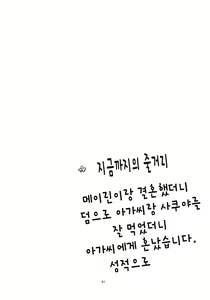 지금까지의 줄거리
메이린이랑 결혼했더니
덤으로 아가씨랑 사쿠야를
잘 먹었더니
아가씨에게 혼났습니다.
성적으로